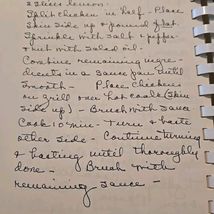 2 slices lemon.
Split chicken in half - Place
Skin side up & pound flat.
Sprinkle with salt & pepper
& rub with salad oil.
Combine remaining ingre-
dients in a sauce pan until
smooth - Place chicken
on grill over hot coals (skin
side up) - Brush with sauce
Cook 10 min - Turn & baste
other side - Continue turning
& basting until thoroughly
done - Brush with
remaining sauce